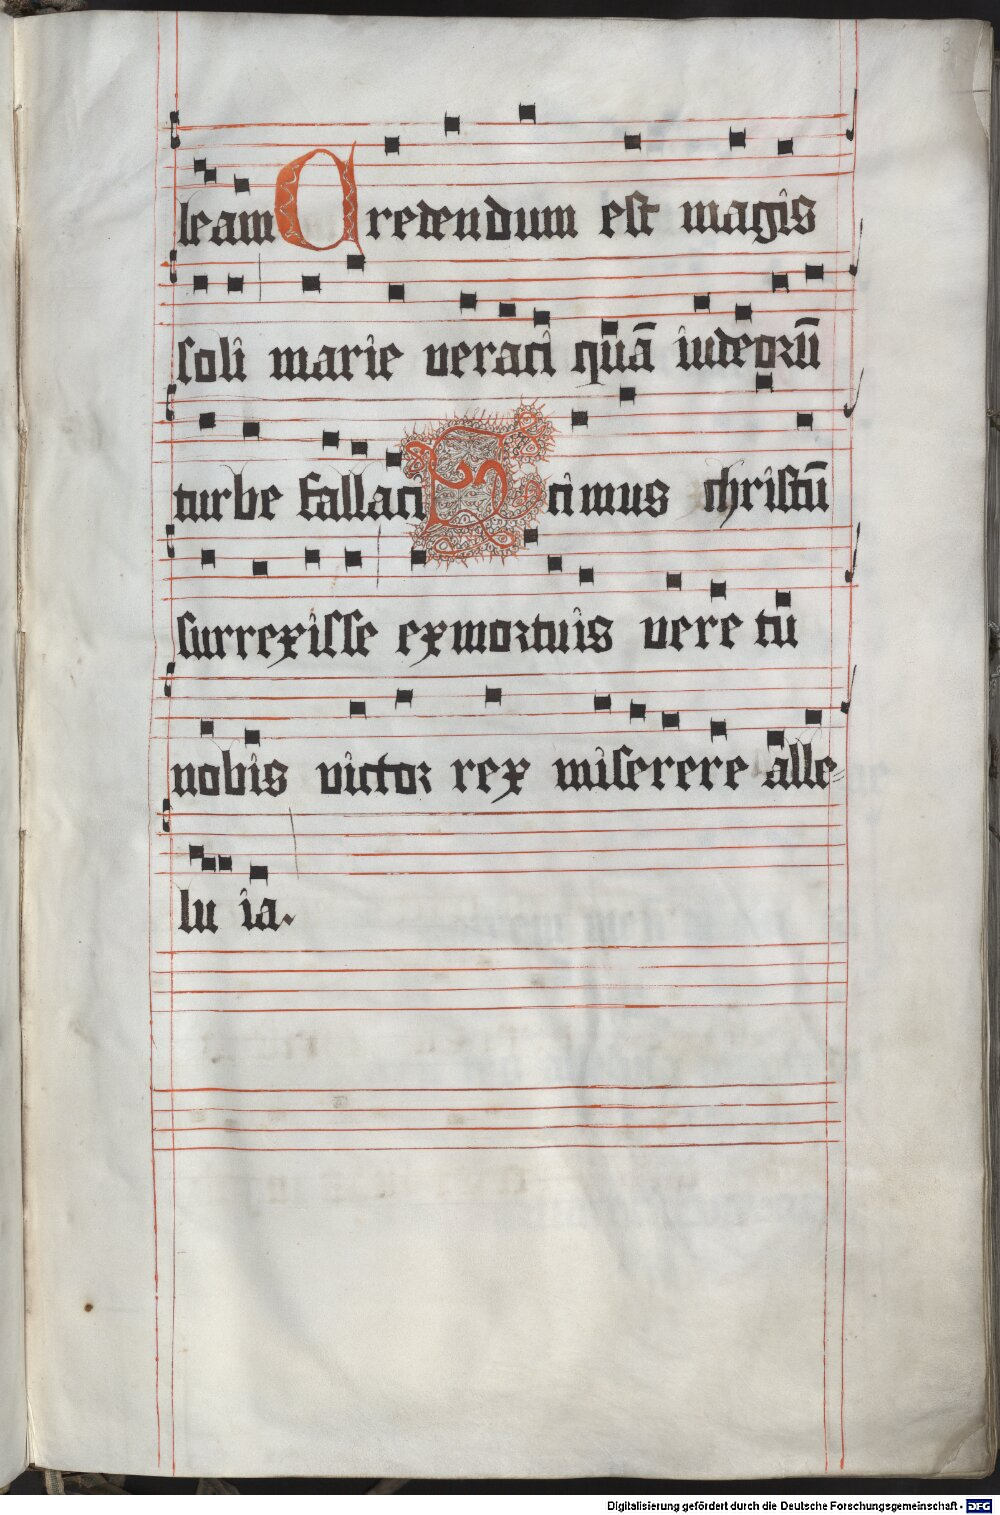 3
leam Credendum est magis
soli marie veraci quā iudeorū
turbe fallaci Scimus christū
surrexisse ex mortuis vere tu
nobis victor rex miserere alle-
lu ia.
Digitalisierung gefördert durch die Deutsche Forschungsgemeinschaft - DFG